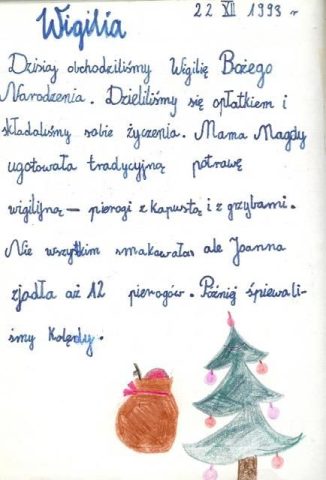 Wigilia
22 XII 1993 r
Dzisiaj obchodziliśmy Wigilię Bożego
Narodzenia. Dzieliliśmy się opłatkiem i
składaliśmy sobie życzenia. Mama Magdy
ugotowała tradycyjną potrawę
wigilijną — pierogi z kapustą i z grzybami.
Nie wszytkim smakowała ale Joanna
zjadła aż 12 pierogów. Później śpiewali-
śmy kolędy.